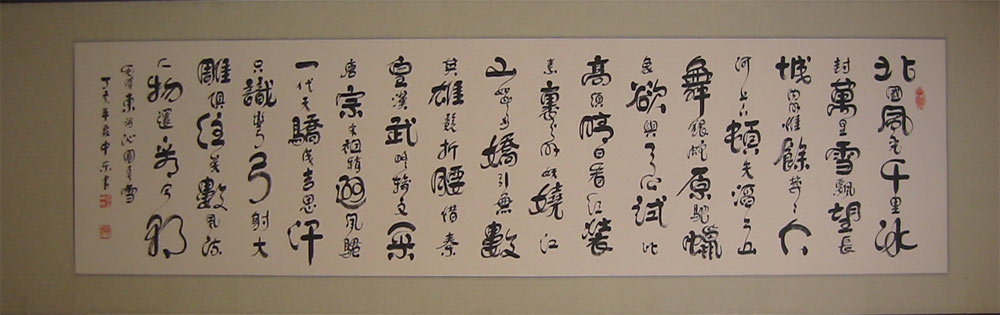 北國風光千里冰
封萬里雪飄望長
城內外惟餘莽々大
河上下頓失滔々山
舞銀蛇原馳蠟
象欲與天公試比
高須晴日看紅裝
素裹分外妖嬈江
山如此多嬌引無數
英雄競折腰惜秦
皇漢武略輸文采
唐宗宋祖稍遜風騷
一代天驕成吉思汗
只識彎弓射大
雕俱往矣數風流
人物還看今朝
毛澤東詞沁園春雪
丁亥年